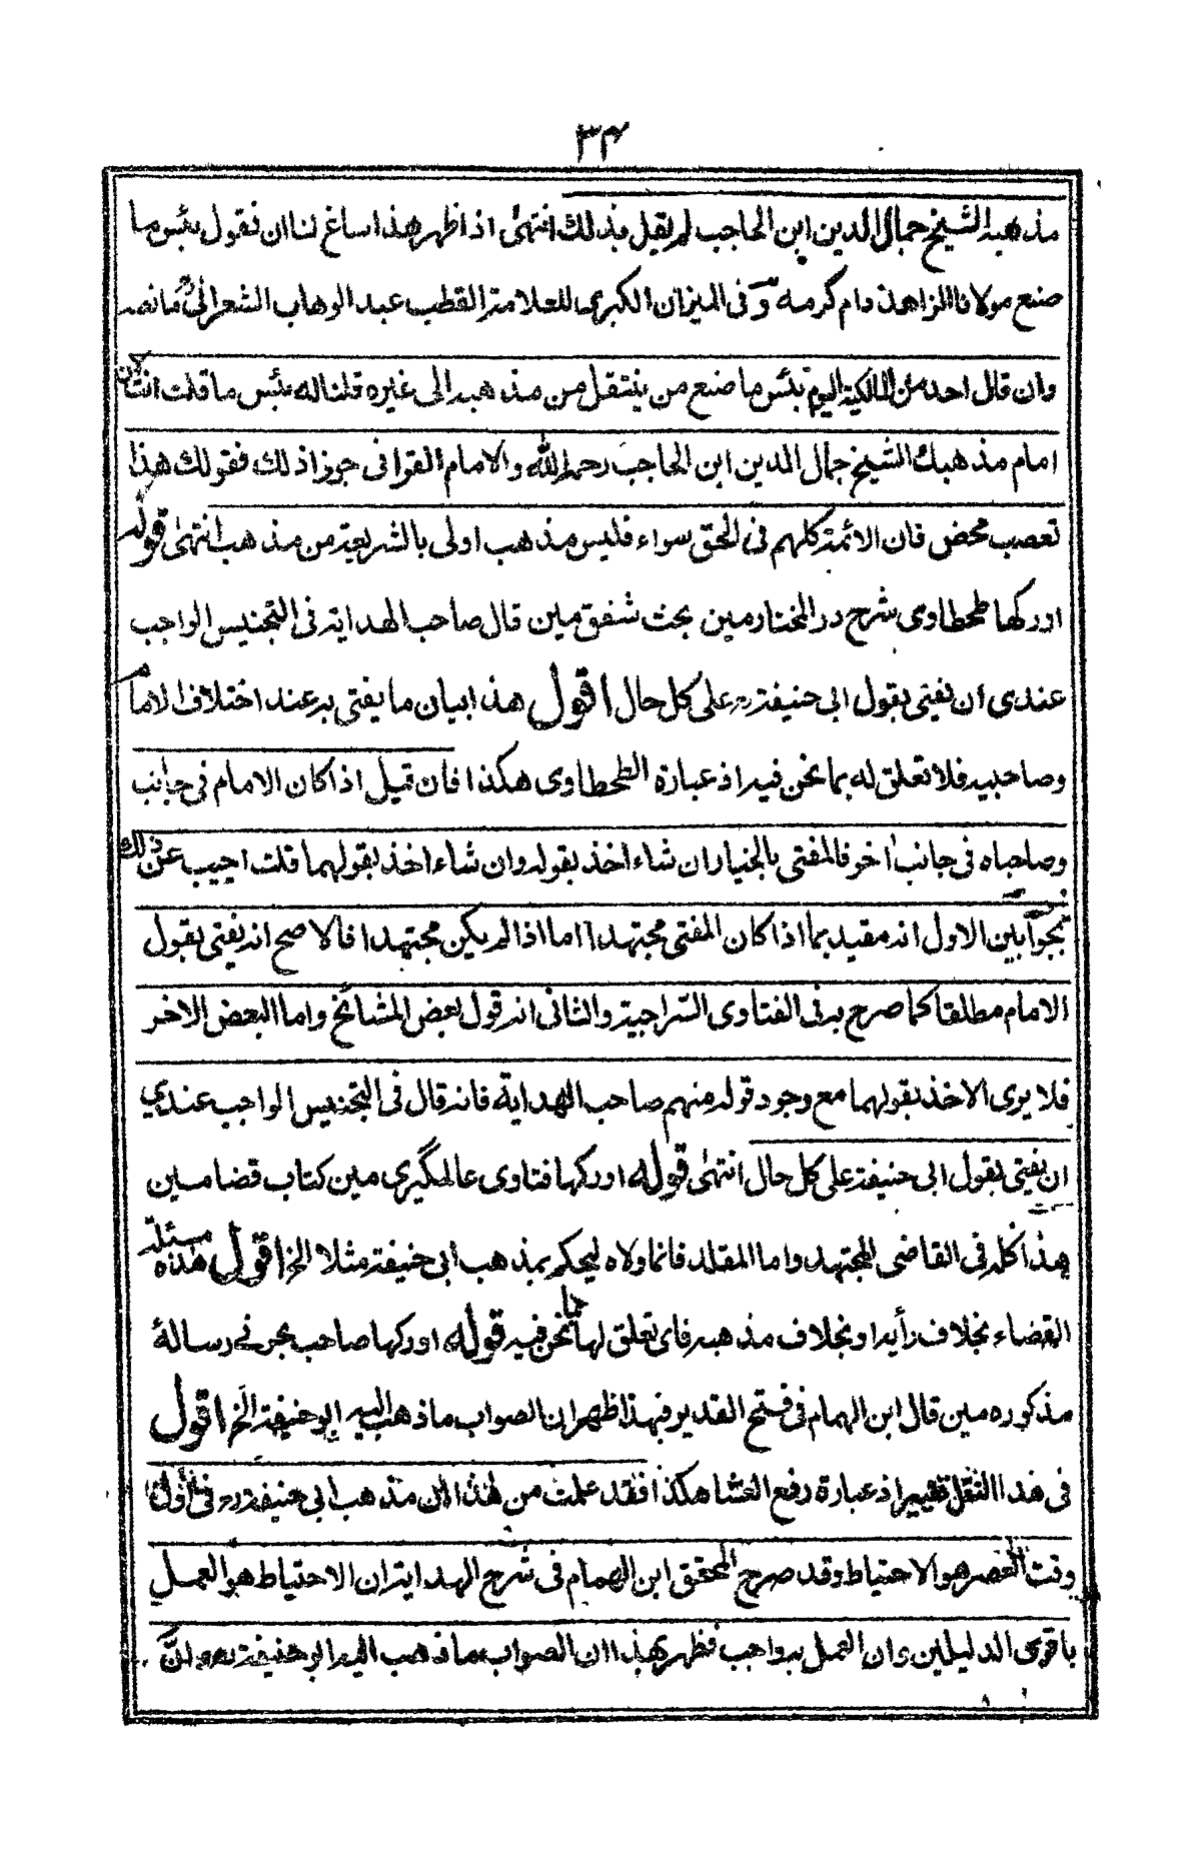 ٣٤
مذهبه الشيخ جمال الدين ابن الحاجب لم يقل بذلك انتهى اذا ظهر هذا ساغ لنا ان نقول بئس ما
صنع مولانا المزاهد دام كرمه و فى الميزان الكبرى للعلامة القطب عبد الوهاب الشعرانى مانصه
وان قال احد من المالكية اليوم بئس ما صنع من ينتقل من مذهبه الى غيره قلنا له بئس ما قلت انت لان
امام مذهبك الشيخ جمال الدين ابن الحاجب رحمه الله والامام القرافى جوزا ذلك فقولك هذا
تعصب محض فان الائمة كلهم فى الحق سواء فليس مذهب اولى بالشريعة من مذهب انتهى قوله
اور كها طحطاوى شرح در المختار مين بحث شفق مين قال صاحب الهداية فى التجنيس الواجب
عندى ان يفتى بقول ابى حنيفة رح على كل حال اقول هذا بيان ما يفتى به عند اختلاف الامام
وصاحبيه فلا تعلق له بما نحن فيه اذ عبارة الطحطاوى هكذا فان قيل اذا كان الامام فى جانب
وصاحباه فى جانب اخر فالمفتى بالخيار ان شاء اخذ بقوله وان شاء اخذ بقولهما قلت اجيب عن ذلك
بجوابين الاول انه مقيد بما اذا كان المفتى مجتهدا اما اذا لم يكن مجتهدا فالاصح انه يفتى بقول
الامام مطلقا كما صرح به فى الفتاوى السراجية والثانى انه قول بعض المشائخ واما البعض الاخر
فلا يرى الاخذ بقولهما مع وجود قوله منهم صاحب الهداية فانه قال فى التجنيس الواجب عندي
ان يفتى بقول ابى حنيفة على كل حال انتهى قوله اور كها فتاوى عالمگيرى مين كتاب قضا مين
هذا كله فى القاضى المجتهد واما المقلد فانما ولاه ليحكم بمذهب ابى حنيفة مثلا الخ اقول هذه مسئلة
القضاء بخلاف رأيه او بخلاف مذهبه فاى تعلق لها بما نحن فيه قوله اور كها صاحب بحر نے رسالهٔ
مذكوره مين قال ابن الهمام فى فتح القدير فبهذا ظهر ان الصواب ما ذهب اليه ابو حنيفة الخ اقول
فى هذا النقل تغيير اذ عبارة رفع الغشا هكذا فقد علمت من هذا ان مذهب ابى حنيفة رح فى اول
وقت العصر هو الاحتياط وقد صرح المحقق ابن الهمام فى شرح الهداية ان الاحتياط هو العمل
باقوى الدليلين وان العمل به واجب فظهر بهذا ان الصواب ما ذهب اليه ابو حنيفة رح وان